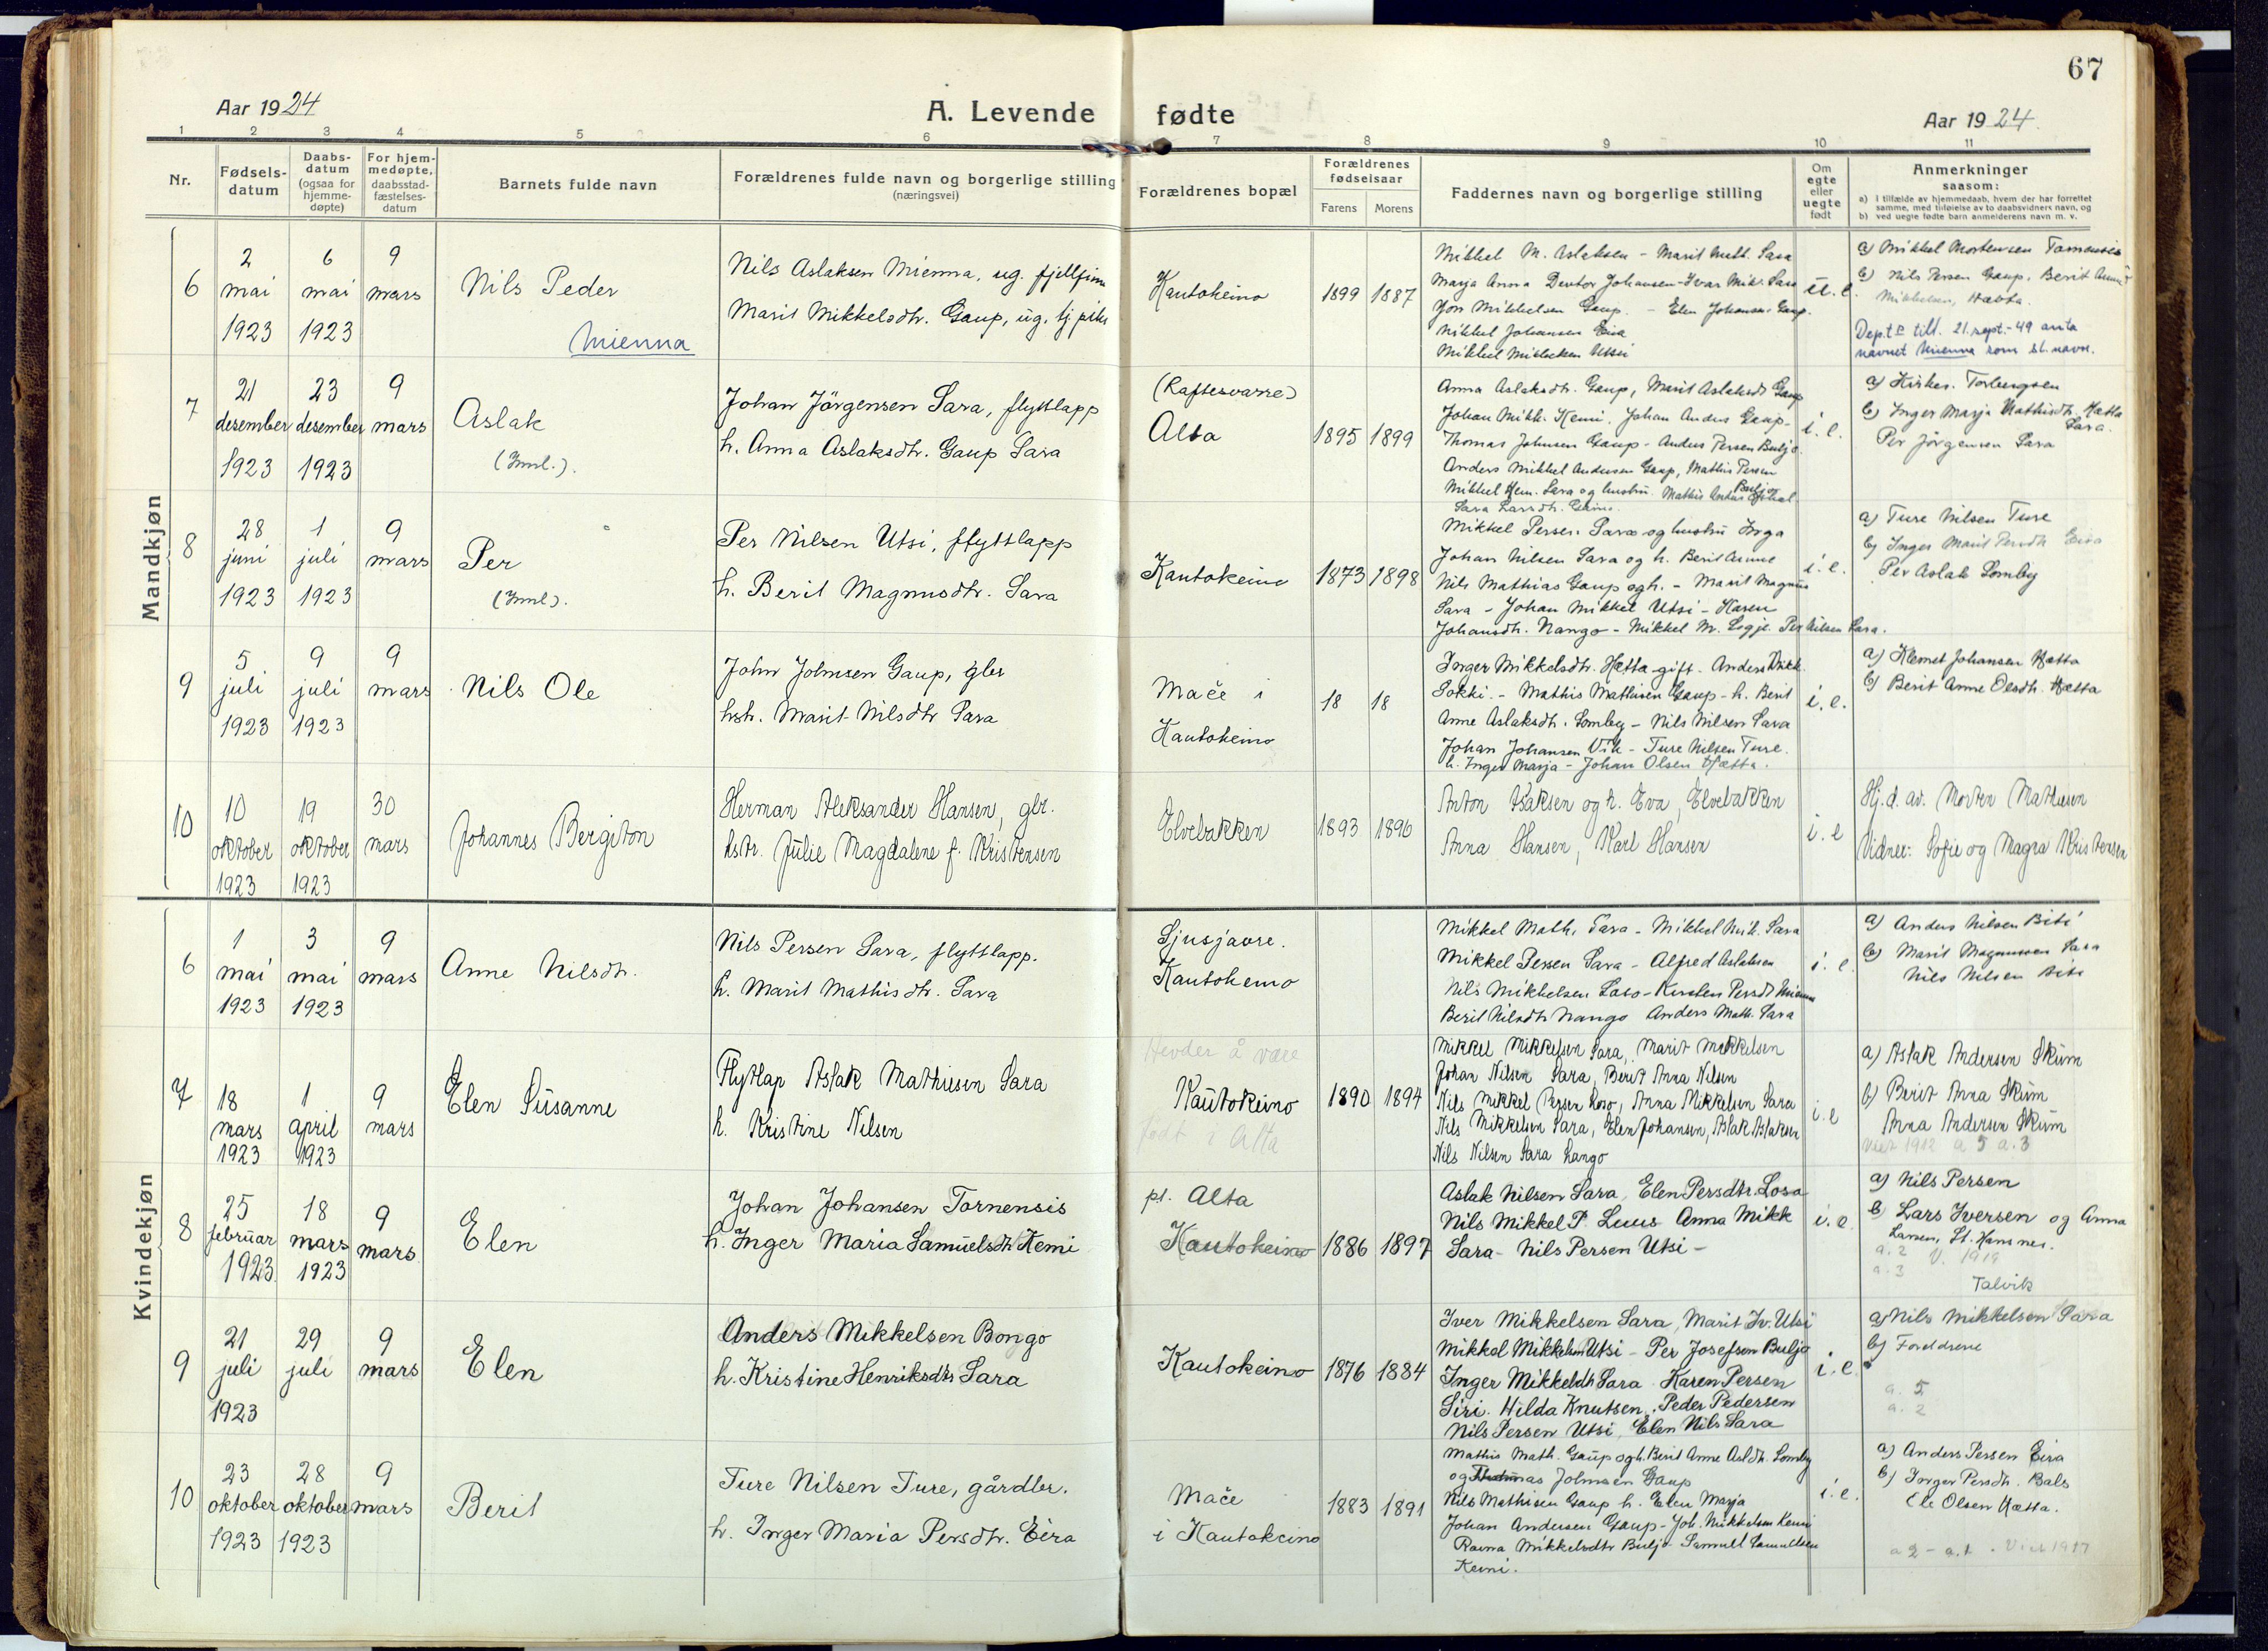 67
Aar 1924
A. Levende fødte
Aar 1924.
1 2 3 4 5 6 7 8 9 10 11
Nr.
Fødsels-
datum
Daabs-
datum
(ogsaa for
hjemme-
døpte)
For hjem-
medøpte,
daabsstad-
fæstelses-
datum
Barnets fulde navn
Forældrenes fulde navn og borgerlige stilling
(næringsvei)
Forældrenes bopæl
Forældrenes
fødselsaar
Farens Morens
Faddernes navn og borgerlige stilling
Om
egte
eller
uegte
født
Anmerkninger
saasom:
a) i tilfælde av hjemmedaab, hvem der har forrettet
samme, med tilføielse av to daabsvidners navn, og
b) ved uegte fødte barn anmelderens navn m. v.
Mandkjøn
6
2
mai
1923
6
mai
1923
9
mars
Nils Peder
Mienna
Nils Aslaksen Mienna, ug. fjellfinn
Marit Mikkelsdtr. Gaup, ug. tj. pike
Kautokeino
1899 1887
Mikkel M. Aslaksen - Marit Sara
Marja Anna Johansen - Ivar Mik. Sara
Jon Mikkelsen Gaup. - Elen Johansen Gaup.
Mikkel Johansen Eira
Mikkel Mikkelsen Utsi
u. e.
a) Mikkel Mortensen
b) Nils Persen Gaup. Berit
Mikkelsen, Hætta.
Dept.s till. 21. sept.-49 anta
navnet Mienna som sl. navn.
7
21
desember
1923
23
desember
1923
9
mars
Aslak
(Innl.).
Johan Jörgensen Sara, flyttlapp
h. Anna Aslaksdtr. Gaup Sara
(Raftesvarre)
Alta
1895 1899
Anna Aslaksdtr. Gaup, Marit Aslaksdt Gaup
Johan Mikk. Kemi. Johan Anders Gaup -
Thomas Johnsen Gaup - Anders Persen Buljo.
Anders Mikkel Andersen Gaup, Mathis Persen
Buljo
Mikkel Hen. Sara og hustru. Mathis
Sara
i. e.
a) Kirkes. Torbergsen
b) Inger Marja Mathisdtr. Hætta
Sara.
Per Jörgensen Sara
8
28
juni
1923
1
juli
1923
9
mars
Per
(Innl).
Per Nilsen Utsi, flyttlapp
h. Berit Magnusdtr. Sara
Kautokeino
1873 1898
Mikkel Persen Sara og hustru Inga
Johan Nilsen Sara og h. Berit Anne
Nils Mathias Gaup og h. - Marit Magnus
Sara - Johan Mikkel Utsi - Karen
Johansdtr. Nango - Mikkel M. Logje. Per Nilsen Sara.
i. e.
a) Ture Nilsen Ture
b) Inger Marit Persdtr Eira
Per Aslak Somby
9
5
juli
1923
9
juli
1923
9
mars
Nils Ole
John Johnsen Gaup, gbr
hstr. Marit Nilsdtr Sara
Mače i
Kautokeino
18 18
Inger Mikkelsdtr. Hætta gift. Anders Mikk.
Sokki. - Mathis Mathisen Gaup - h. Berit
Anne Aslaksdtr. Somby - Nils Nilsen Sara
Johan Johansen Vik - Ture Nilsen Ture.
h. Inger Marja - Johan Olsen Hætta.
i. e.
a) Klemet Johansen Hætta
b) Berit Anne Olsdtr. Hætta
10
10
oktober
1923
19
oktober
1923
30
mars
Johannes Bergiton
Herman Aleksander Hansen, gbr.
hstr. Julie Magdalene f. Kristensen
Elvebakken
1893 1896
Anton Isaksen og h. Eva, Elvebakken
Anna Hansen, Karl Hansen
i. e
Hj. d. av. Morten Mathisen
Vidner: Sofie og Magna Kristensen
Kvindekjøn
6
1
mai
1923
3
mai
1923
9
mars
Anne Nilsdtr.
Nils Persen Sara, flyttlapp.
h. Marit Mathisdtr. Sara
Sjusjavre.
Kautokeino
Mikkel Math. Sara - Mikkel Mik. Sara
Mikkel Persen Sara - Alfred Aslaksen
Nils Mikkelsen - Kirsten Persdt
Berit Nilsdtr Nango Anders Math. Sara
i. e.
a) Anders Nilsen Biti
b) Marit Magnussen Sara
Nils Nilsen Siti
7
18
mars
1923
1
april
1923
9
mars
Elen Susanne
Flytlap Aslak Mathisen Sara
h. Kristine Nilsen
Hevder å være
Kautokeino
født i Alta
1890 1894
Mikkel Mikkelsen Sara, Marit Mikkelsen
Johan Nilsen Sara, Berit Anna Nilsen
Nils Mikkel Persen Loso, Anna Mikkelsen Sara
Nils Mikkelsen Sara, Elen Johansen, Aslak Aslaksen
Nils Nilsen Sara Lango
i. e
a) Aslak Andersen Skum
b) Berit Anna Skum
Anna Andersen Skum
1912 a 5 a. 3
8
25
februar
1923
18
mars
1923
9
mars
Elen
Johan Johansen Tornensis
h. Inger Maria Samuelsdtr Kemi
pt. Alta
Kautokeino
1886 1897
Aslak Nilsen Sara, Elen Persdtr. Losa
Nils Mikkel P. Luus Anna Mikk
Sara - Nils Persen Utsi -
i. e.
a) Nils Persen
b) Lars Iversen og Anna
Larsen, St. Hamnes.
a. 2 V. 1919
a. 3
Talvik
9
21
juli
1923
29
juli
9
mars
Elen
Anders Mikkelsen Bongo
h. Kristine Henriksdtr Sara
Kautokeino
1876 1884
Iver Mikkelsen Sara, Marit Iv. Utsi
Mikkel Mikkelsen Utsi - Per Josefsen Buljo
Inger Mikkeldtr Sara. Karen Persen
Siri. Hilda Knutsen. Peder Pedersen
Nils Persen Utsi, Elen Nils Sara
i. e.
a) Nils Mikkelsen Sara
b) Foreldrene
a. 5
a. 2
10
23
oktober
1923
28
oktober
1923
9
mars
Berit
Ture Nilsen Ture, gårdbr.
h. Inger Maria Persdtr. Eira
Mače
i Kautokeino
1883 1891
Mathis Math. Gaup og h. Berit Anne Asl.dtr. Somby
og Thomas Johnsen Gaup
Nils Mathisen Gaup h. Elen Marja
Johan Andersen Gaup - Joh. Mikkelsen Kemi
Ravna Mikkelsdtr Buljo - Samuel Samuelsen
Kemi.
i. e.
a) Anders Persen Eira
b) Inger Persdtr. Bals
Ole Olsen Hætta.
a 2 - a. 1 . 1917